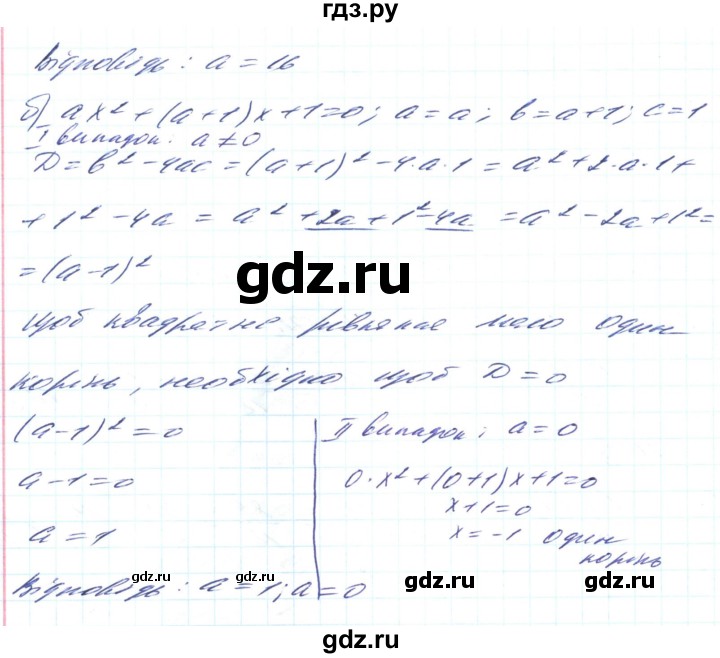 гдз.ру
Відповідь: a = 16
б) ax² + (a+1)x + 1 = 0; a = a; b = a+1; c = 1
I випадок: a ≠ 0
D = b² - 4ac = (a+1)² - 4·a·1 = a² + 2·a·1 +
+ 1² - 4a = a² + 2a + 1² - 4a = a² - 2a + 1² =
= (a-1)²
gdz.ru
щоб квадратне рівняння мало один
корінь, необхідно щоб D = 0
(a-1)² = 0
a - 1 = 0
a = 1
II випадок: a = 0
0·x² + (0+1)x + 1 = 0
x + 1 = 0
x = -1 один
корінь
Відповідь: a = 1; a = 0
gdz.ru
gdz.ru
gdz.ru
gdz.ru
gdz.ru